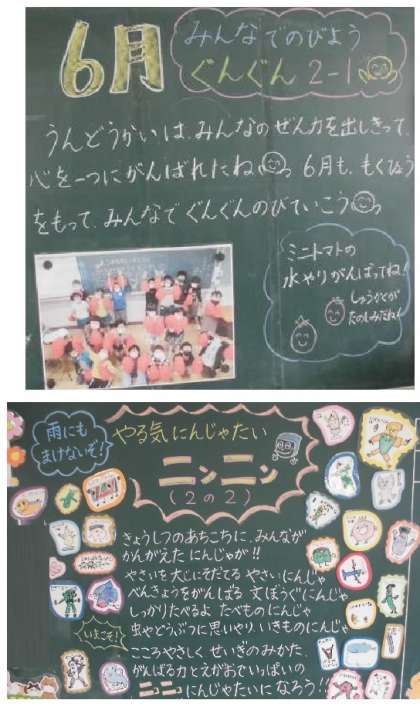 6月
みんなでのびよう
ぐんぐん2-1
うんどうかいは、みんなのぜん力を出しきって、
心を一つにがんばれたね。6月も、もくひょう
をもって、みんなで ぐんぐんのびていこう。
ミニトマトの
水やりがんばってね!
しゅうかくが
たのしみだね!
雨にも
まけないぞ!
やる気にんじゃたい
ニンニン
(2の2)
きょうしつのあちこちに、みんなが
かんがえた にんじゃが!!
やさいを大じにそだてる やさいにんじゃ
べんきょうをがんばる 文ぼうぐにんじゃ
しっかりたべるよ たべものにんじゃ
虫やどうぶつに思いやり、いきものにんじゃ
いまこそ!
こころやさしく せいぎのみかた、
がんばる力とえがおでいっぱいの
ニンニンにんじゃたいになろう!!